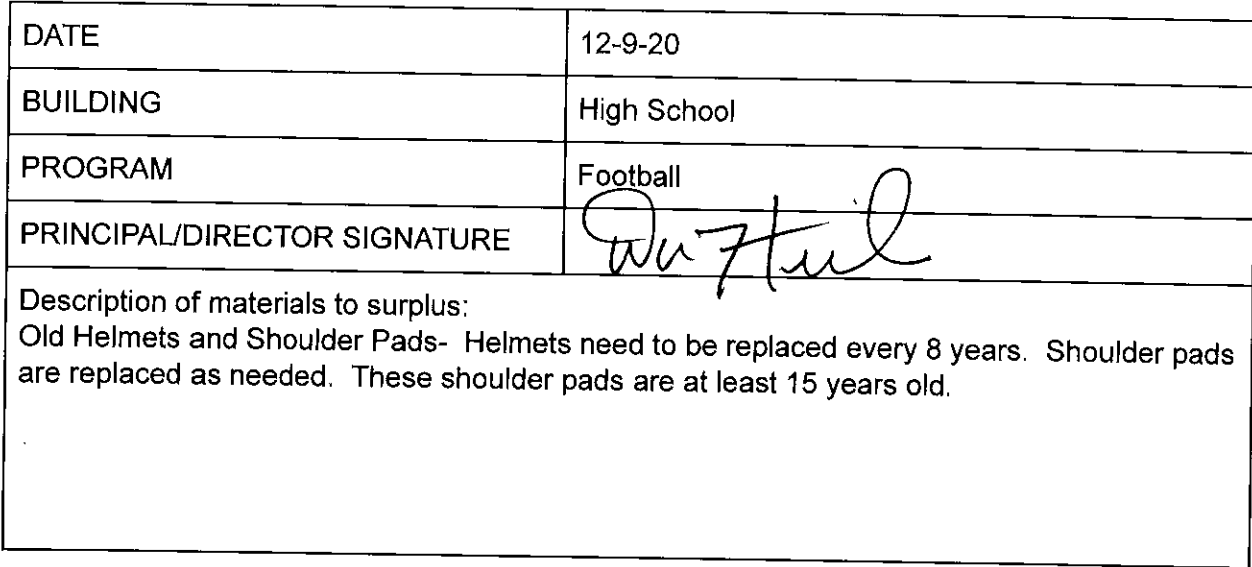 DATE 12-9-20
BUILDING High School
PROGRAM Football
PRINCIPAL/DIRECTOR SIGNATURE
Description of materials to surplus:
Old Helmets and Shoulder Pads- Helmets need to be replaced every 8 years. Shoulder pads
are replaced as needed. These shoulder pads are at least 15 years old.